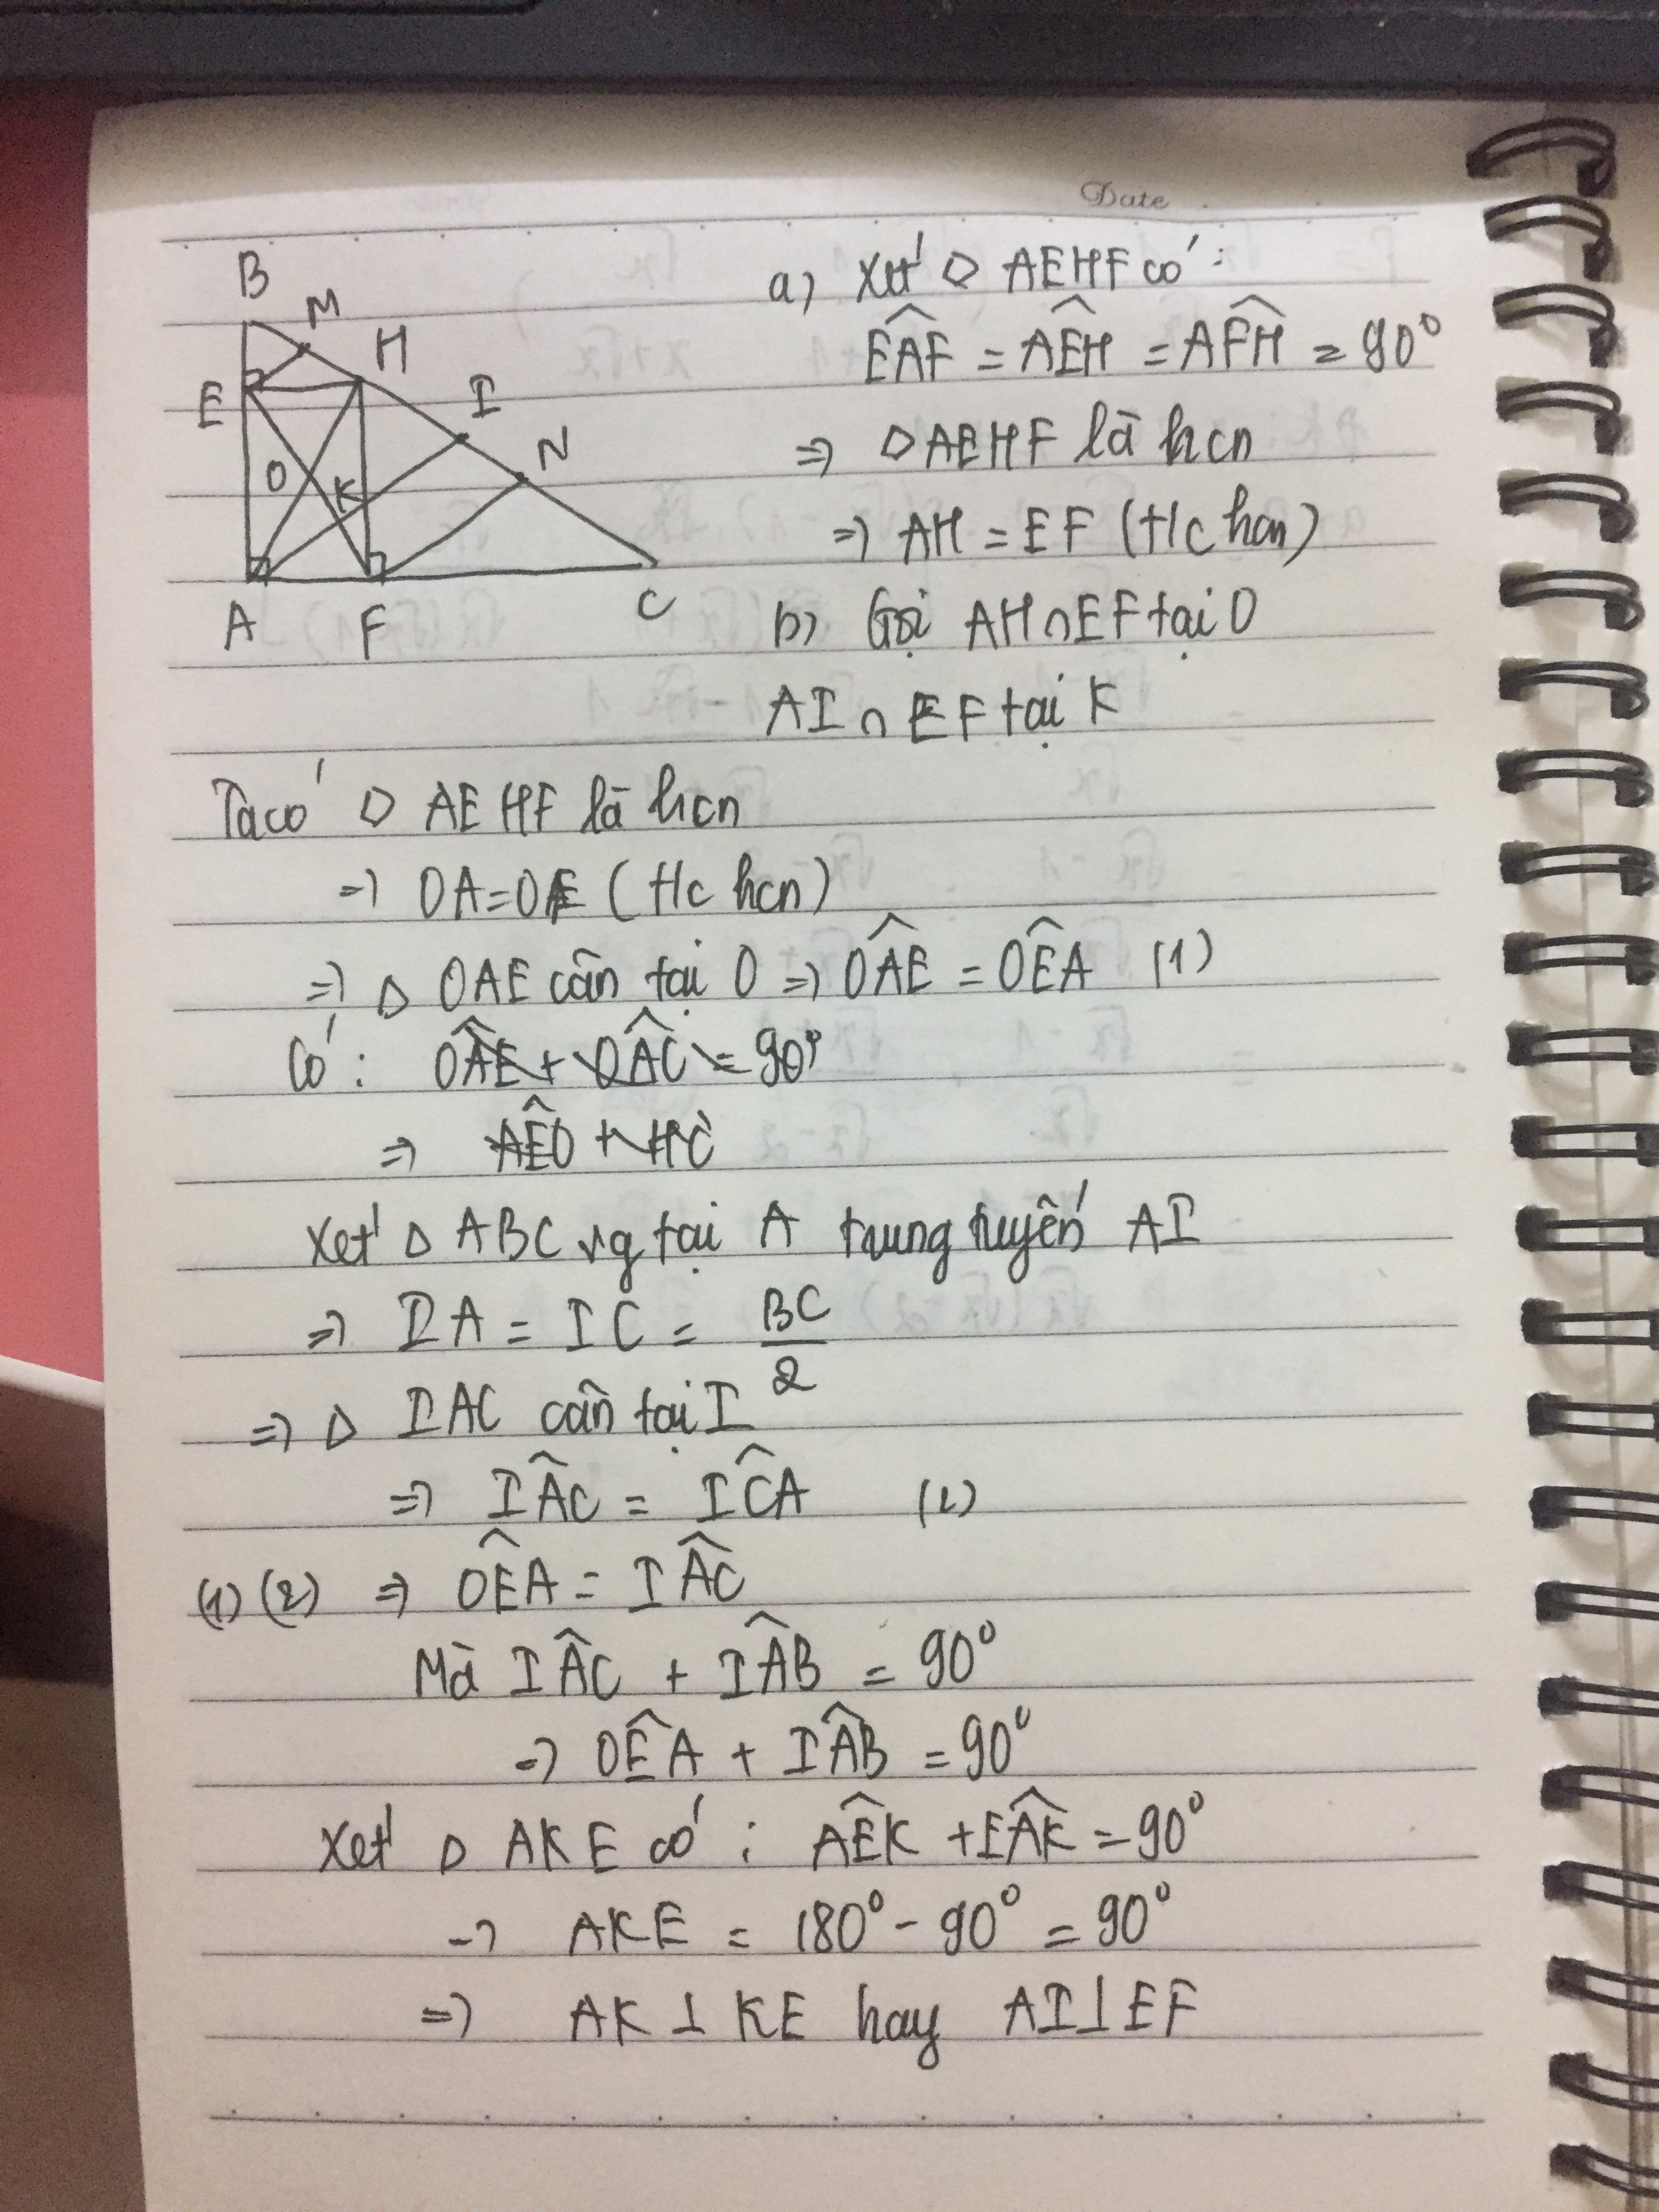 Date
B
M
H
E
I
N
O
K
A
F
C
a) Xét ◇ AEHF có :
EAF^ = AEH^ = AFH^ = 90°
=> ◇ AEHF là hcn
=> AH = EF (t/c hcn)
b) Gọi AH ∩ EF tại O
AI ∩ EF tại K
Ta có ◇ AEHF là hcn
=> OA = OE (t/c hcn)
=> △ OAE cân tại O => OAE^ = OEA^ (1)
Có : OAE^ + OAC^ = 90°
=> AEO^ + HC
Xét △ ABC vg tại A trung tuyến AI
=> IA = IC = BC/2
=> △ IAC cân tại I
=> IAC^ = ICA^ (2)
(1) (2) => OEA^ = IAC^
Mà IAC^ + IAB^ = 90°
=> OEA^ + IAB^ = 90°
Xét △ AKE có : AEK^ + EAK^ = 90°
=> AKE = 180° - 90° = 90°
=> AK ⊥ KE hay AI ⊥ EF